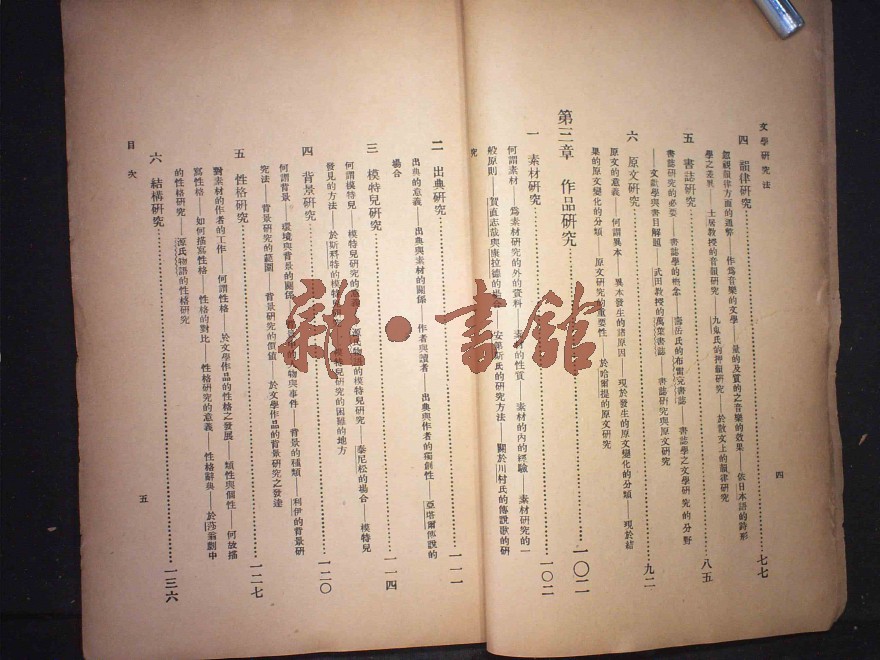 文學研究法
四
四 韻律研究……七七
忽視韻律方面的通弊——作爲音樂的文學——量的及質的之音樂的效果——依日本語的詩形
學之差異——土居教授的音韻研究——九鬼氏的押韻研究——於散文上的韻律研究
五 書誌研究……八五
書誌研究的必要——書誌學的概念——壽岳氏的布雷克書誌——書誌學之文學研究的分野
——文獻學與書目解題——武田教授的萬葉書誌——書誌研究與原文研究
六 原文研究……九二
原文的意義——何謂異本——異本發生的諸原因——現於發生的原文變化的分類——現於結
果的原文變化的分類——原文研究的重要性——於哈爾提的原文研究
第三章 作品研究……一〇二
一 素材研究……一〇二
何謂素材——爲素材研究的外的資料——素材的性質——素材的內的經驗——素材研究的一
般原則——賀直志哉與康拉德的場合——安諾斯氏的研究方法——關於川村氏的傳說歌的研
究
二 出典研究……一一一
出典的意義——出典與素材的關係——作者與讀者——出典與作者的獨創性——亞塔爾傳說的
場合
三 模特兒研究……一一四
何謂模特兒——模特兒研究的意義——源氏物語的模特兒研究——泰尼松的場合——模特兒
發見的方法——於斯科特的模特兒研究——模特兒研究的困難的地方
四 背景研究……一二〇
何謂背景——環境與背景的關係——人物與事件——背景的種類——利伊的背景研
究法——背景研究的範圍——背景研究的價值——於文學作品的背景研究之發達
五 性格研究……一二七
對素材的作者的工作——何謂性格——於文學作品的性格之發展——類性與個性——何故描
寫性格——如何描寫性格——性格的對比——性格研究的意義——性格辭典——於莎翁劇中
的性格研究——源氏物語的性格研究
六 結構研究……一三六
目次
五
雜·書館